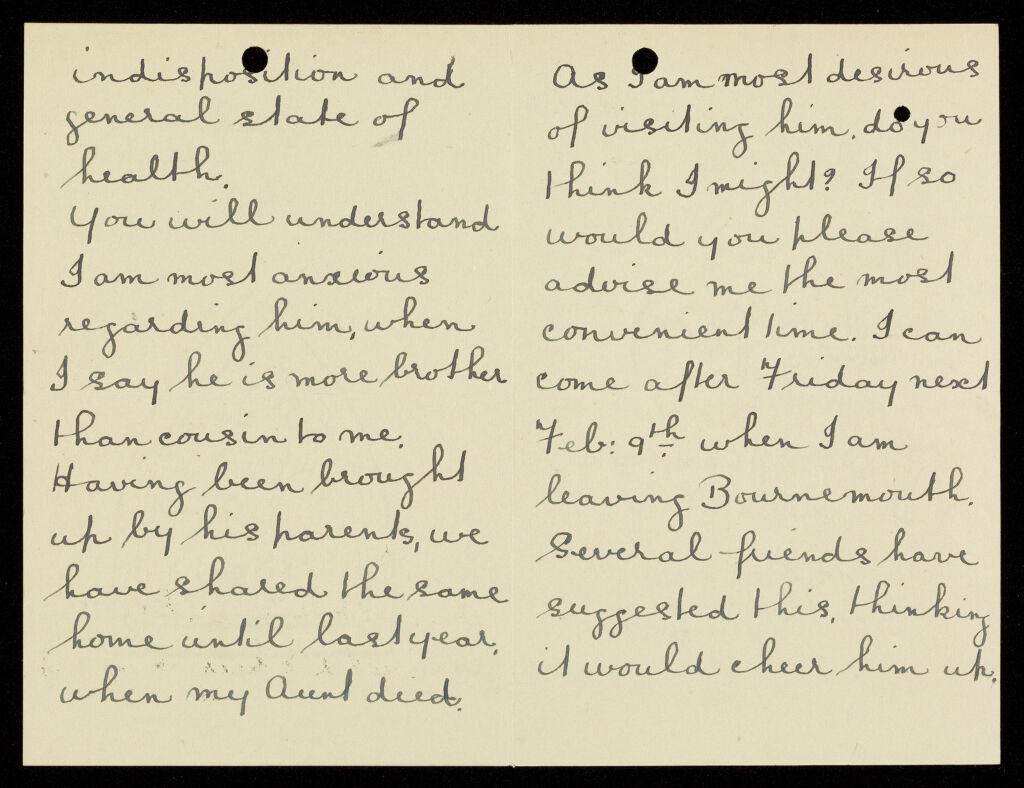 indisposition and
general state of
health.
You will understand
I am most anxious
regarding him, when
I say he is more brother
than cousin to me.
Having been brought
up by his parents, we
have shared the same
home until last year,
when my Aunt died.
As I am most desirous
of visiting him, do you
think I might? If so
would you please
advise me the most
convenient time. I can
come after Friday next
Feb: 9th when I am
leaving Bournemouth.
Several friends have
suggested this, thinking
it would cheer him up.